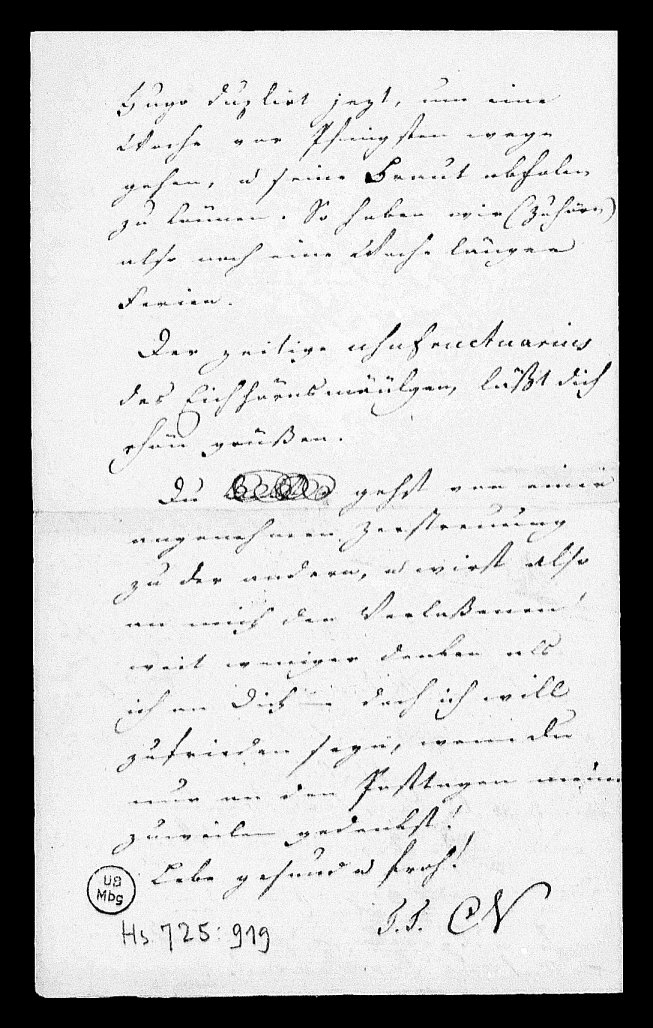 Hugo duplirt jezt, um eine
Woche vor Pfingsten weg
gehen, u seine Braut abholen
zu können. So haben wir (Zuhörer)
also noch eine Woche länger
Ferien.
Der zeitige usufructuarius
des Eichhörnsmäulgen, läßt dich
schön grüßen.
Du gehst von einer
angenehmen Zerstreuung
zu der andern, u wirst also
an mich den Verlaßenen!
weit weniger denken als
ich an Dich — doch ich will
zufrieden seyn, wenn du
nur an den Posttagen meiner
zuweilen gedenkst!
Lebe gesund u froh!
CN
UB
Mbg
Hs. 725: 919